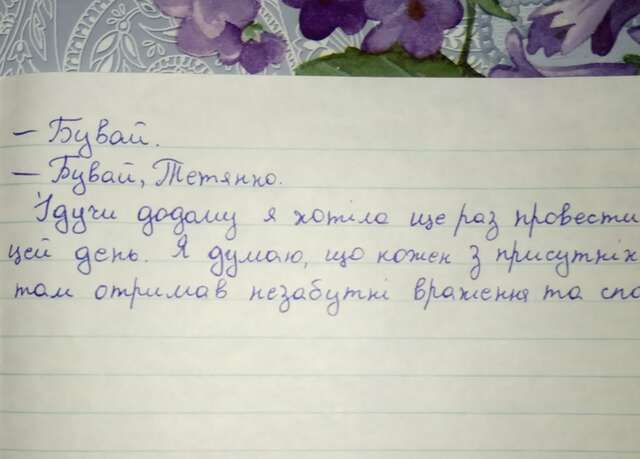 – Бувай.
– Бувай, Тетянко.
Ідучи додому я хотіла ще раз провести
цей день. Я думаю, що кожен з присутніх
там отримав незабутні враження та спо